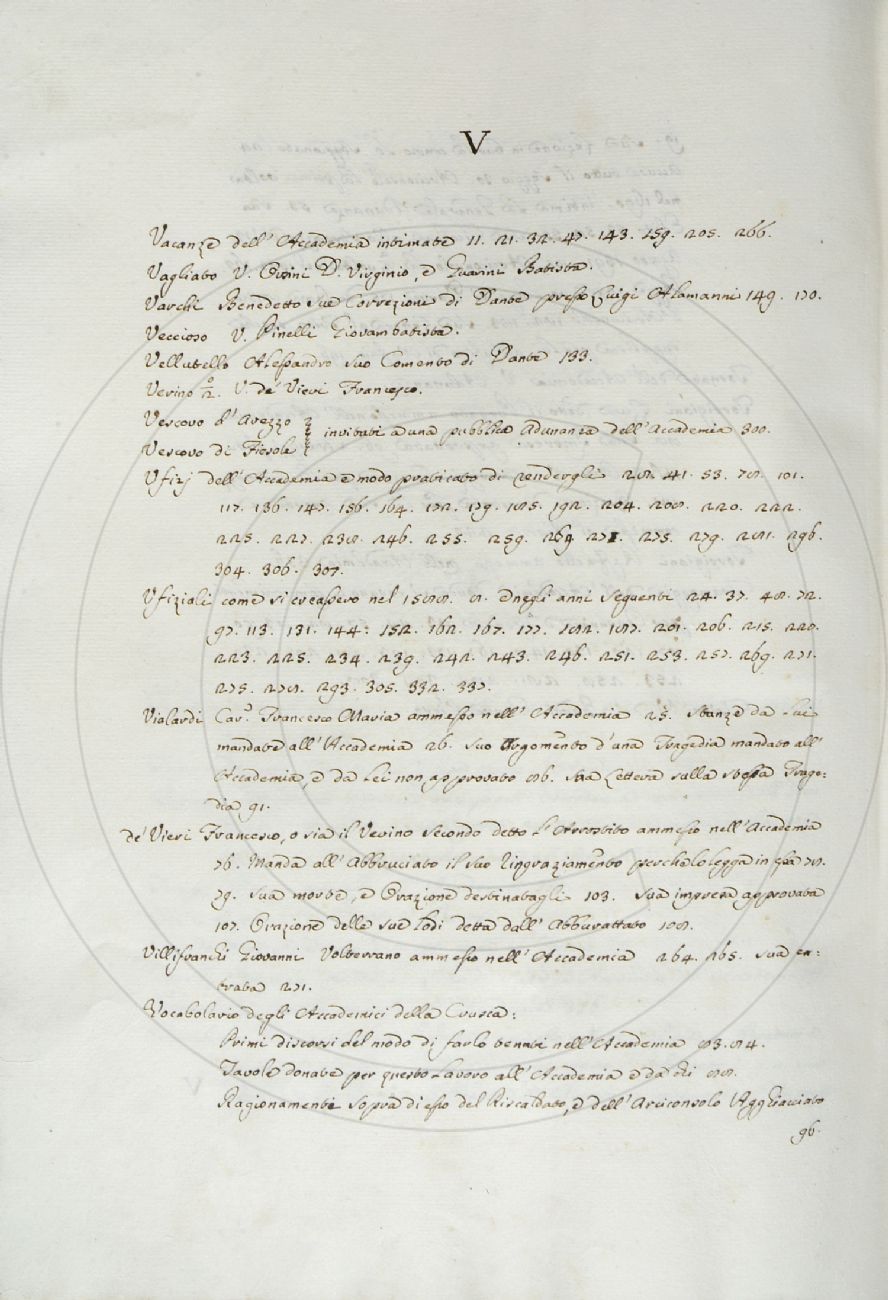 V
Vacanze dell' Accademia intimate 11. 21. 32. 47. 143. 159. 205. 266.
Vagliato V. Orsini D. Virginio, e Guarini Batista.
Varchi Benedetto sue Correzioni di Dante presso Luigi Alamanni 149. 170.
Veccioso V. Pinelli Giovambatista.
Vellutello Alessandro suo Comento di Dante 133.
Verino V. de' Vieri Francesco.
Vescovo d' Arezzo
Vescovo di Fiesole } invitati a una pubblica Adunanza dell' Accademia 300.
Ufizj dell' Accademia e modo praticato di rendergli 28. 41. 53. 78. 101.
117. 136. 147. 156. 164. 172. 179. 185. 192. 204. 208. 220. 222.
225. 227. 238. 246. 255. 259. 269. 271. 275. 279. 281. 296.
304. 306. 307.
Ufiziali come si creassero nel 1588. 8. e negli anni seguenti 24. 37. 48. 72.
97. 113. 131. 144. 152. 162. 167. 177. 182. 187. 201. 206. 215. 220.
223. 225. 234. 239. 242. 243. 246. 251. 253. 257. 269. 271.
275. 278. 293. 305. 332. 337.
Vialardi Cav.º Francesco Maria ammesso nell' Accademia 25. Stanze da lui
mandate all' Accademia 26. suo Argomento d'una Tragedia mandato all'
Accademia, e da lei non approvato 86. sua Lettera sulla stessa Trage=
dia 91.
de' Vieri Francesco, o sia il Verino secondo detto l'Arrostito ammesso nell' Accademia
76. Manda all' Abbruciato il suo Ringraziamento perchè lo legga in essa 78.
79. sua morte, e Orazione destinatagli 103. sua impresa approvata
107. Orazione delle sue lodi detta dall' Abburattato 108.
Villifranchi Giovanni Volterrano ammesso nell' Accademia 264. 265. sua en=
trata 271.
Vocabolario degli Accademici della Crusca:
Primi discorsi del modo di farlo tenuti nell' Accademia 83. 84.
Tavole donate per questo Lavoro all' Accademia e da chi 88.
Ragionamenti sopra di esso del Riscaldato, e dell' Arciconsolo Agghiacciato
96.